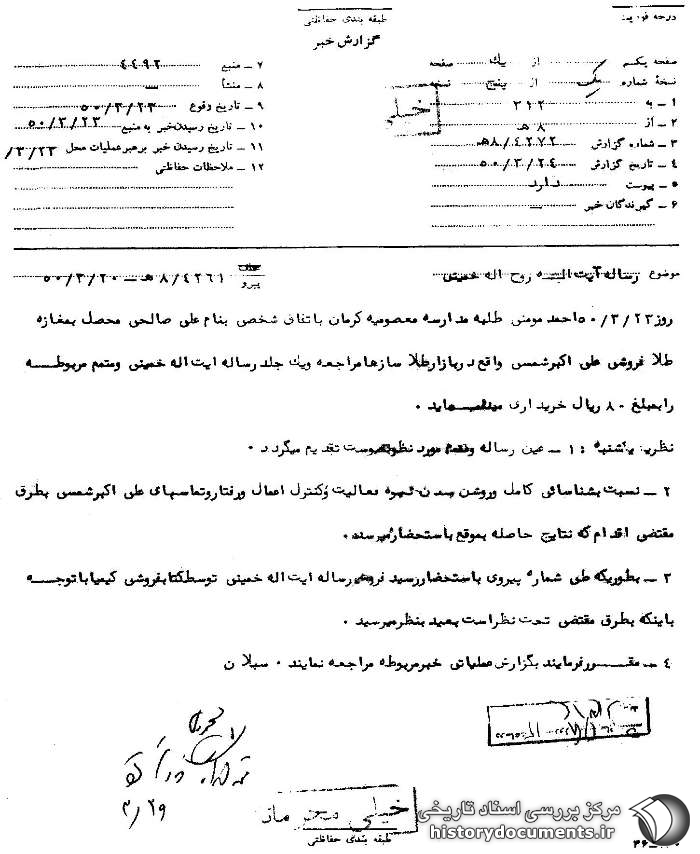 درجه فوریت
طبقه بندی حفاظتی
گزارش خبر
صفحه یکم از یک صفحه
نسخه شماره یک از پنج نسخه
۱ – به ۳۱۲
۲ – از ۸ هـ
۳ – شماره گزارش ۸/۴۲۷۲هـ
۴ – تاریخ گزارش ۵۰/۳/۲۴
۵ – پیوست دارد
۶ – گیرندگان خبر –
۷ – منبع ۴۴۹۲
۸ – منشأ
۹ – تاریخ وقوع ۵۰/۳/۲۳
۱۰ – تاریخ رسیدن خبر به منبع ۵۰/۳/۲۳
۱۱ – تاریخ رسیدن خبر برهبر عملیات محل ۳/۲۳/
۱۲ – ملاحظات حفاظتی
خیلی
موضوع رساله آیت اله روح اله خمینی
پیرو ۸/۴۲۶۱هـ – ۵۰/۳/۲۰
روز ۵۰/۳/۲۳ احمد مومنی طلبه مدارسه معصومیه کرمان باتفاق شخصی بنام علی صالحی محصل بمغازه
طلا فروشی علی اکبر شمسی واقع در بازار طلا سازها مراجعه ویک جلد رساله ایت اله خمینی ومتمم مربوطه
را بمبلغ ۸۰ ریال خریداری مینماید ۰
نظریه یکشنبه : ۱ – عین رساله و متمم مورد نظر بپیوست تقدیم میگردد ۰
۲ – نسبت بشناسائی کامل وروشن شدن نحوه فعالیت وکنترل اعمال ورفتار وتماسهای علی اکبر شمسی بطرق
مقتضی اقدام که نتایج حاصله بموقع باستحضار میرسد ۰
۳ – بطوریکه طی شماره پیروی باستحضار رسید فروش رساله ایت اله خمینی توسط کتابفروشی کیمیا با توجه
باینکه بطرق مقتضی تحت نظر است بعید بنظر میرسید ۰
۴ – مقرر فرمایند بگزارش عملیاتی خبر مربوطه مراجعه نمایند ۰ سبلان
۳/۲۹
خیلی محرمانه
طبقه بندی حفاظتی
مرکز بررسی اسناد تاریخی
historydocuments.ir